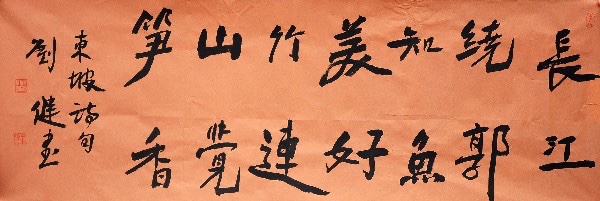 長江
繞郭
知魚
美好
竹連
山覺
笋香
東坡詩句
劉健書